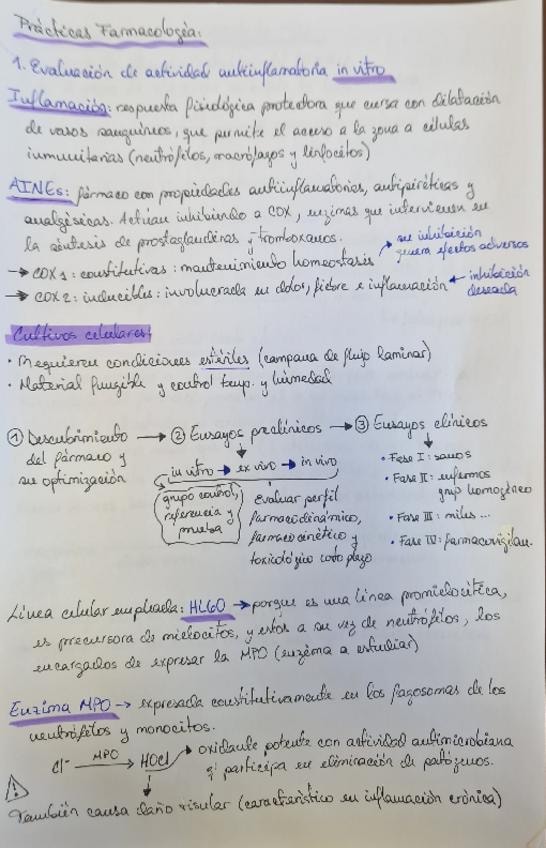 Prácticas Farmacología:
1. Evaluación de actividad antiinflamatoria in vitro
Inflamación: respuesta fisiológica protectora que cursa con dilatación
de vasos sanguíneos, que permite el acceso a la zona a células
inmunitarias (neutrófilos, macrófagos y linfocitos)
AINEs: fármaco con propiedades antiinflamatorias, antipiréticas y
analgésicas. Actúan inhibiendo a COX, enzimas que intervienen en
la síntesis de prostaglandinas y tromboxanos.
→ COX 1: constitutivas: mantenimiento homeostasis ↗ su inhibición
genera efectos adversos
→ COX 2: inducibles: involucrada en dolor, fiebre e inflamación ← inhibición
deseada
Cultivos celulares:
• Requieren condiciones estériles (campana de flujo laminar)
• Material fungible y control temp. y humedad
① Descubrimiento
del fármaco y
su optimización
→ ② Ensayos preclínicos
in vitro → ex vivo → in vivo
grupo control,
referencia y
prueba
evaluar perfil
farmacodinámico,
farmacocinético y
toxicológico corto plazo
→ ③ Ensayos clínicos
• Fase I: sanos
• Fase II: enfermos
grup homogéneo
• Fase III: miles ...
• Fase IV: farmacovigilan.
Línea celular empleada: HL60 → porque es una línea promielocítica,
es precursora de mielocitos, y estos a su vez de neutrófilos, los
encargados de expresar la MPO (enzima a estudiar)
Enzima MPO → expresada constitutivamente en los fagosomas de los
neutrófilos y monocitos.
Cl⁻ MPO → HOCl → oxidante potente con actividad antimicrobiana
q' participa en eliminación de patógenos.
⚠
También causa daño tisular (característico en inflamación crónica)